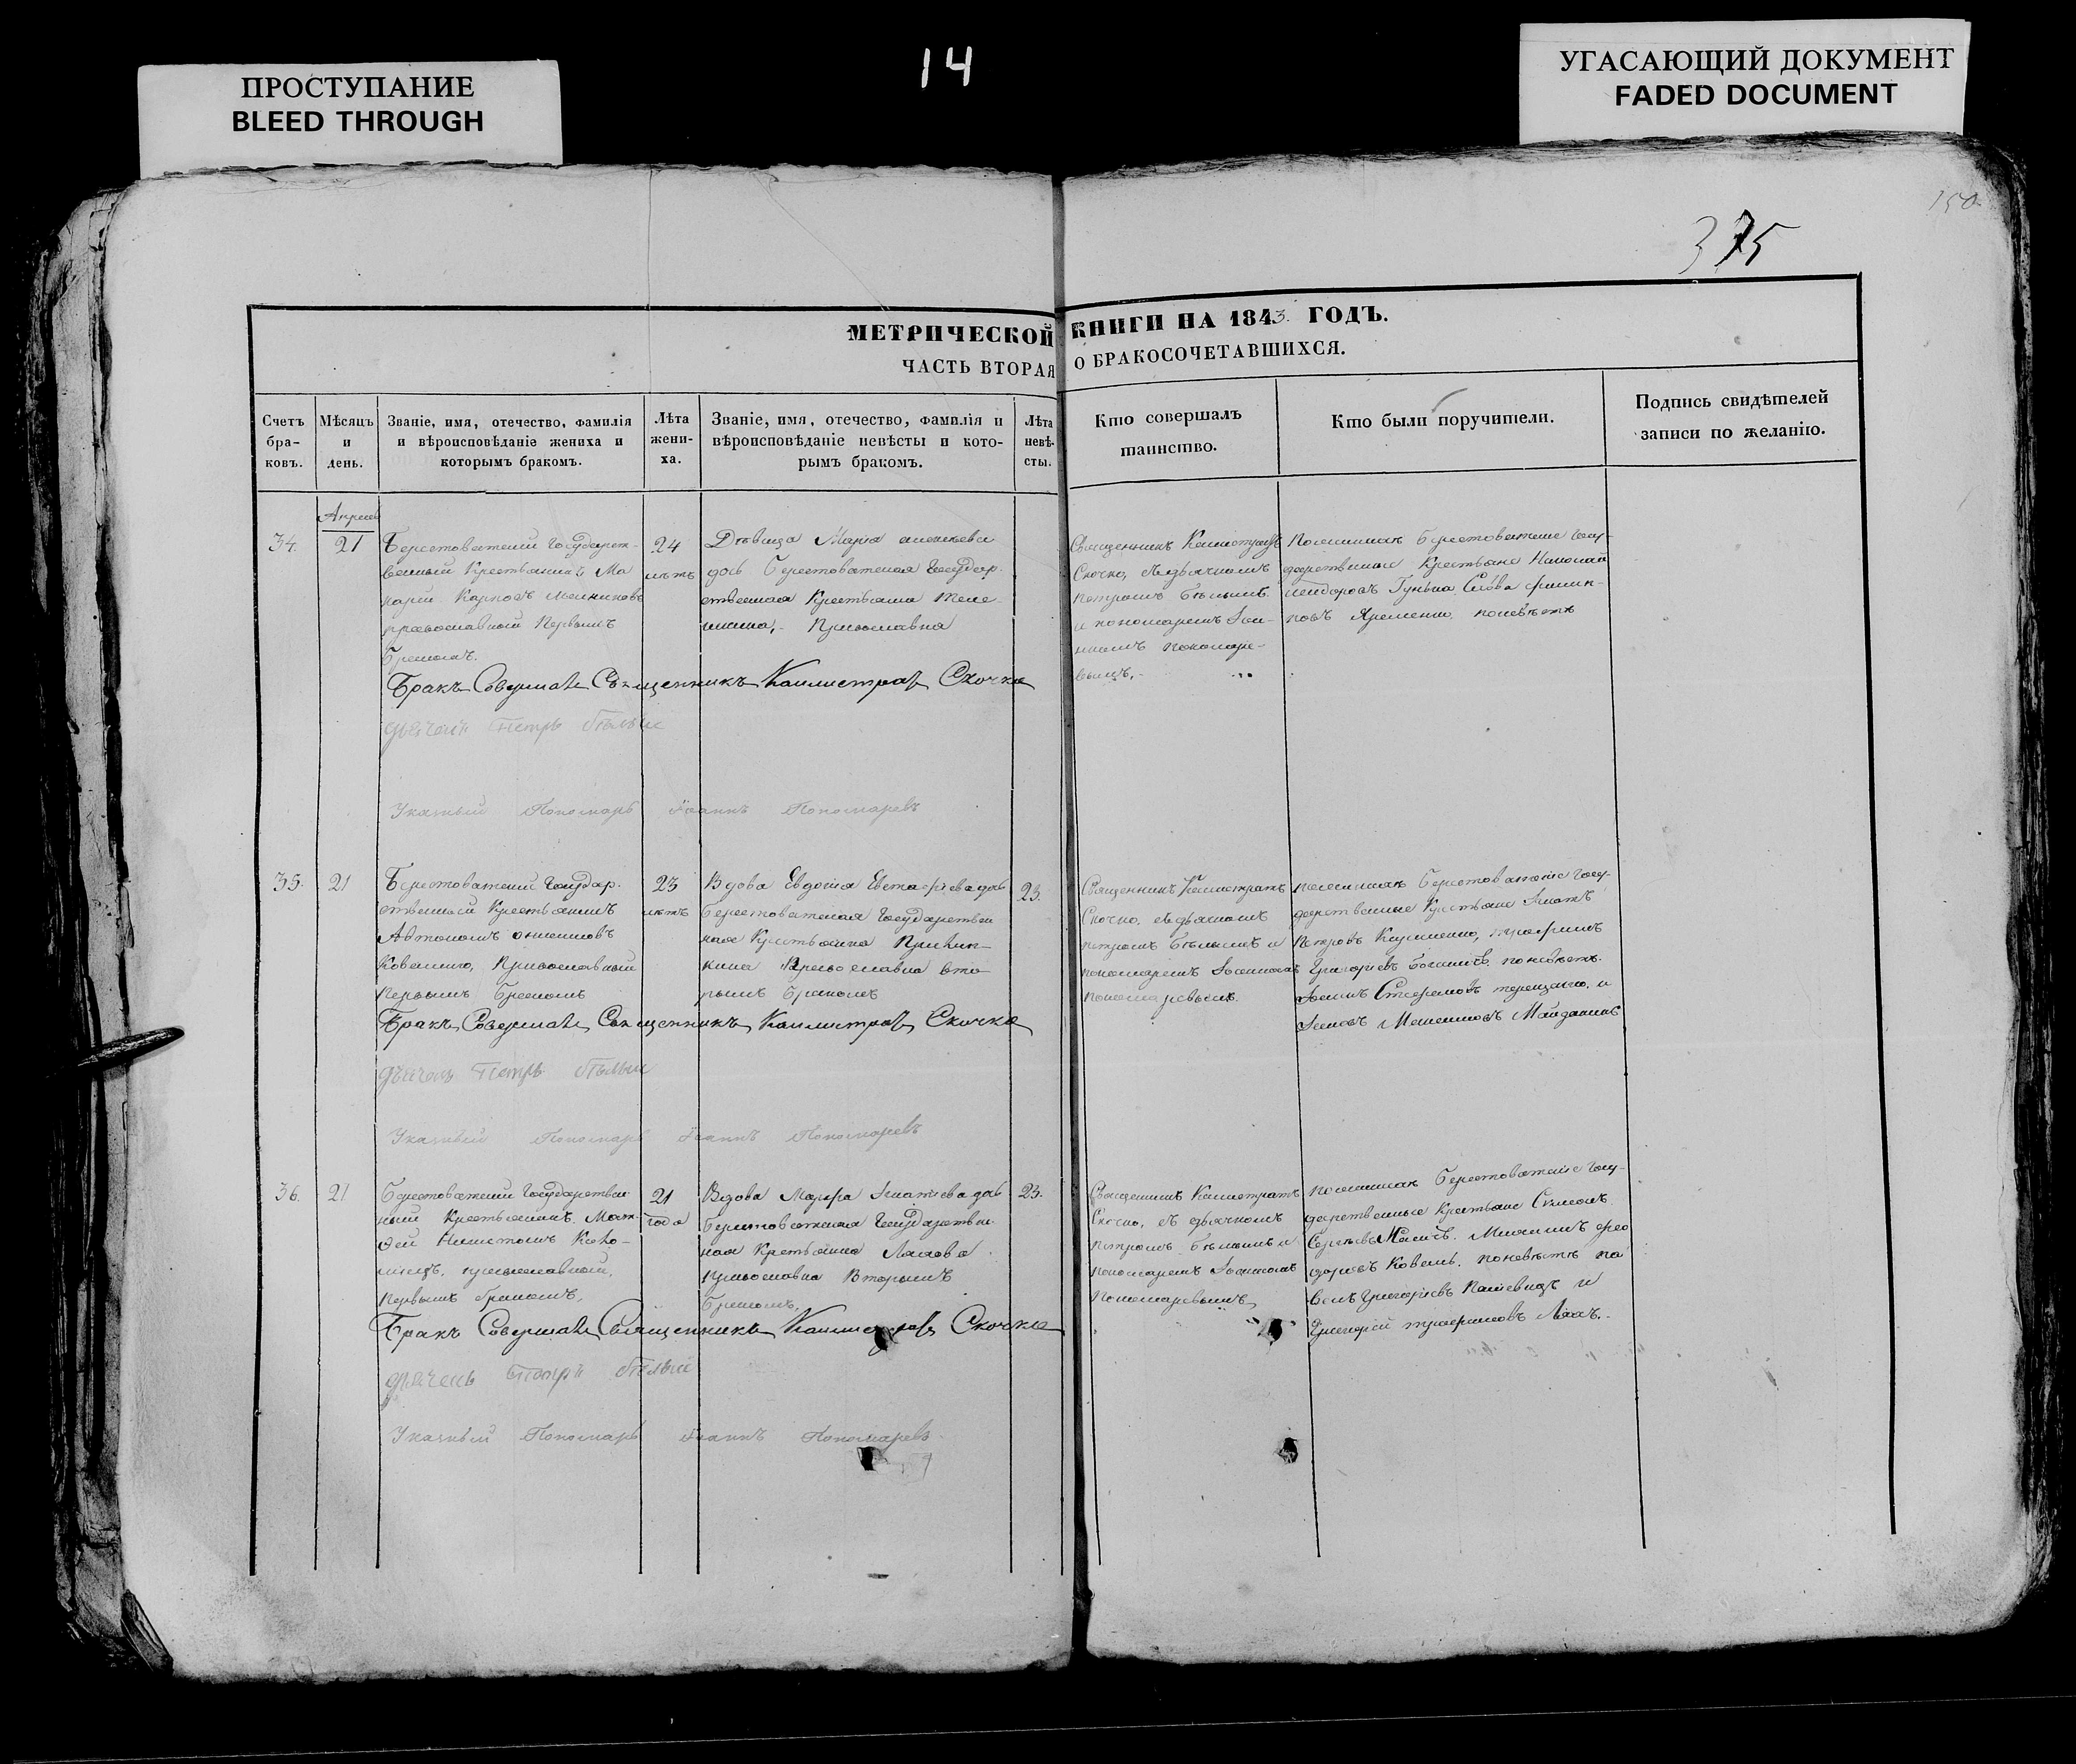 14
ПРОСТУПАНИЕ
BLEED THROUGH
УГАСАЮЩИЙ ДОКУМЕНТ
FADED DOCUMENT
150
375
МЕТРИЧЕСКОЙ КНИГИ НА 1843. ГОДЪ.
ЧАСТЬ ВТОРАЯ О БРАКОСОЧЕТАВШИХСЯ.
Счетъ
бра-
ковъ.
Мѣсяцъ
и
день.
Званіе, имя, отечество, фамилія
и вѣроисповѣданіе жениха и
которымъ бракомъ.
Лѣта
жени-
ха.
Званіе, имя, отечество, фамилія и
вѣроисповѣданіе невѣсты и кото-
рымъ бракомъ.
Лѣта
невѣ-
сты.
Кто совершалъ
таинство.
Кто были поручители.
Подпись свидѣтелей
записи по желанію.
34.
Апреля
21
Берестоватскій Государст-
венный Крестьянинъ Ма
карій Карповъ Мельниковъ
православный Первымъ
Бракомъ.
24
лѣтъ
Дѣвица Марія
дочь Берестоватская Государ-
ственная Крестьянка
Православна
Священникъ Калистратъ
Скочко, съ дьячкомъ
Петромъ Бѣлымъ
и пономаремъ Іоан-
номъ Пономаре-
вымъ.
По женихѣ Берестоватскіе Госу-
дарственные Крестьяне Николай
Гунька Филип-
повъ Яременко, по невѣстѣ
Бракъ Совершалъ Священникъ Каллистратъ Скочко
Дьячокъ Петръ Бѣлый
Указный Пономарь Іоаннъ Пономаревъ
35.
21
Берестоватскій Государ-
ственный Крестьянинъ
Автономъ
Коваленко, Православный
Первымъ Бракомъ
23
лѣтъ
Вдова Евдокія Евстафіева дочь
Берестоватская Государствен
ная Крестьянка
Православна вто
рымъ Бракомъ
23.
Священникъ Калистратъ
Скочко, съ дьячкомъ
Петромъ Бѣлымъ и
пономаремъ Іоанномъ
Пономаревымъ.
По женихѣ Берестоватскіе Госу-
дарственные Крестьяне Игнатъ
Петровъ Трофимъ
Григорьевъ по невѣстѣ
Стефановъ Терещенко, и
Майданикъ
Бракъ Совершалъ Священникъ Каллистратъ Скочко
Дьячокъ Петръ Бѣлый
Указный Пономарь Іоаннъ Пономаревъ
36.
21
Берестоватскій Государствен
ный Крестьянинъ Мат-
ѳей
православный,
Первымъ бракомъ,
21
года
Вдова Марфа Игнатіева дочь
Берестоватская Государствен
ная Крестьянка Ляхова
Православна Вторымъ
Бракомъ,
23.
Священникъ Калистратъ
Скочко, съ дьячкомъ
Петромъ Бѣлымъ и
пономаремъ Іоанномъ
Пономаревымъ
По женихѣ Берестоватскіе Госу-
дарственные Крестьяне
Сергѣевъ Ѳео
доровъ Коваль, по невѣстѣ Па
велъ Григорьевъ и
Григорій Трофимовъ Ляхъ.
Бракъ Совершалъ Священникъ Каллистратъ Скочко
Дьячокъ Петръ Бѣлый
Указный Пономарь Іоаннъ Пономаревъ